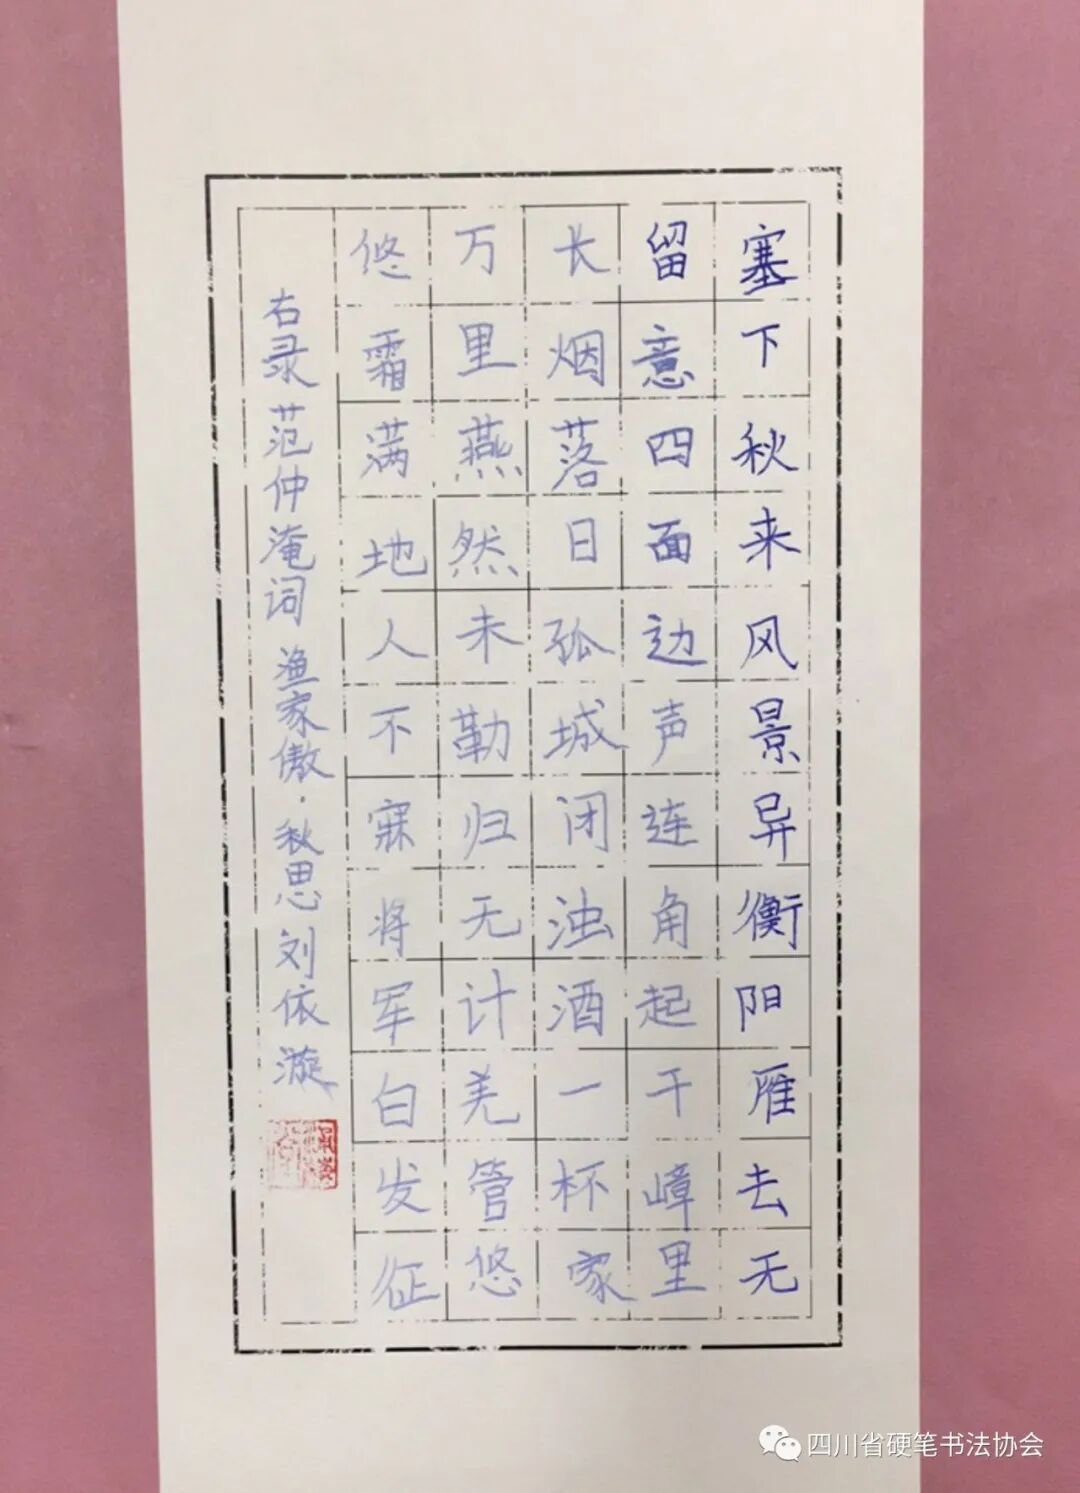 塞下秋来风景异衡阳雁去无
留意四面边声连角起千嶂里
长烟落日孤城闭浊酒一杯家
万里燕然未勒归无计羌管悠
悠霜满地人不寐将军白发征
右录范仲淹词渔家傲·秋思刘依漩
四川省硬笔书法协会